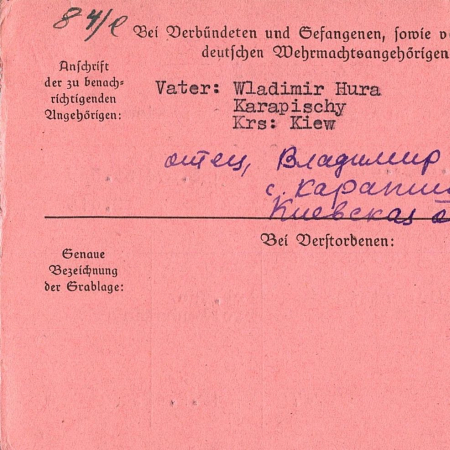 84/e
Bei Verbündeten und Gefangenen, sowie
deutschen Wehrmachtsangehörigen
Anschrift
der zu benach-
richtigenden
Angehörigen:
Vater: Wladimir Hura
Karapischy
Krs: Kiew
отец, Владимир
с. Карапи
Киевская о
Bei Verstorbenen:
Genaue
Bezeichnung
der Grablage: